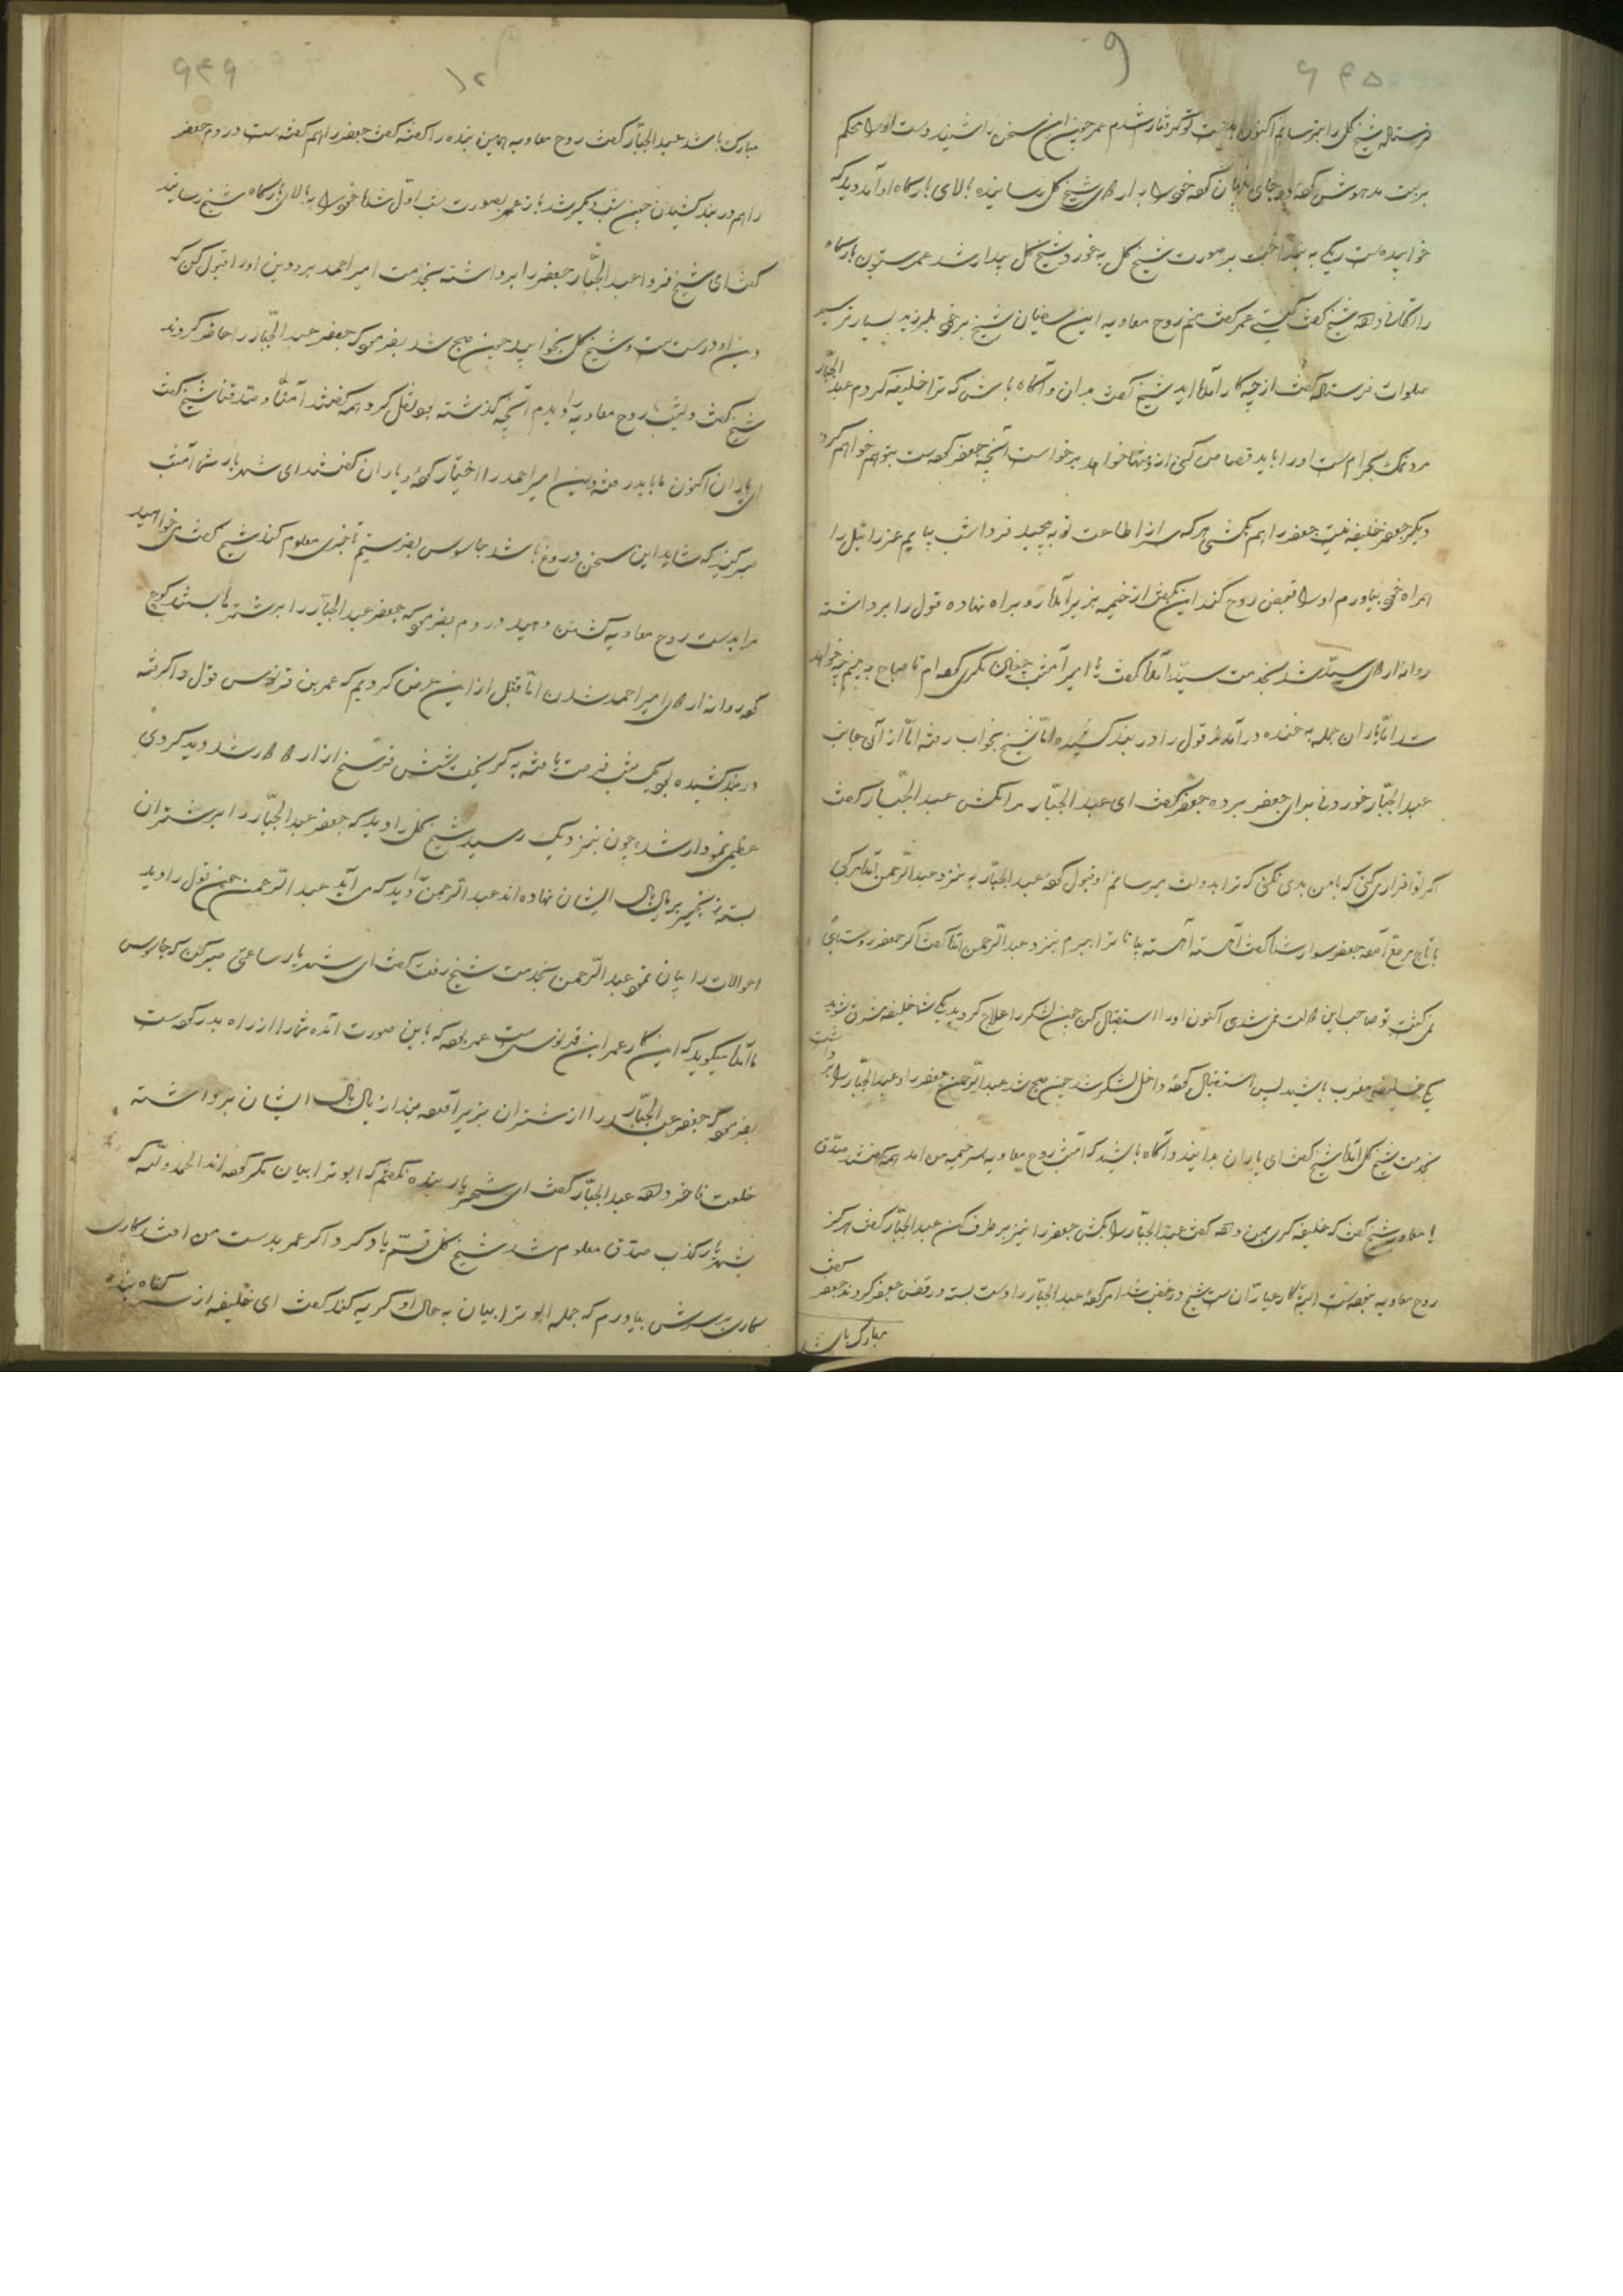 ۹
۶۴۵
فرستاد شیخ کل را بترسانم اکنون بدست تو گرفتار شدم عمر چون این سخن را شنید دست او را محکم
بر بست مدهوش کرده خود را بر اردوی شیخ کل رسانیده بالای بارگاه او آمد دید که
خوابیده ست ریگی به انداخت بر صورت شیخ کل به خورد شیخ کل بیدار شد عمر ستون بارگاه
را تکانی داده شیخ گفت کیستی عمر گفت منم روح معاویه ابن سفیان شیخ بر خود بلرزید بسیار ترسید
صلوات فرستاد گفت از چه کار آمده اید شیخ گفت بدان و آگاه باش که ترا خلیفه کردم عبد الجبار
مرد نمک بحرام ست او را باید قصاص کنی از تو تنها خواهد برخواست آنچه جعفر کرده ست بتو هم خواهم کرد
دیگر جعفر خلیفه نیست جعفر را هم بکشی هر که سر از اطاعت تو به پیچید فردا شب بیایم عزرائیل را
همراه خود بیاورم او را قبض روح کند این بگفت از خیمه بزیر آمده رو براه نهاده قول را برداشته
روانه اردوی سید شد بخدمت سید آمده گفت یا امیر امشب چنین مکری کرده ام تا صباح به بینم چه خواهد
شد اما یاران جمله به خنده در آمدند قول را در بند کشیده اما شیخ بخواب رفته اما از آن جانب
عبد الجبار خوردنی برای جعفر برده جعفر گفت ای عبد الجبار مرا مکش عبد الجبار گفت
اگر تو اقرار می کنی که با من بدی نکنی که ترا بدولت برسانم او قبول کرده عبد الجبار به نزد عبد الرحمن آمد مرکبی
با تاج مرقع آمده جعفر سوار شد گفت آهسته آهسته بیا تا ترا ببرم بنزد عبد الرحمن آمد گفت اگر جعفر روستایی
نمی گفت تو صاحب این دولت نمی شدی اکنون او را استقبال کن چون لشکر را علاج کردید یکی شما خلیفه مشرق شوید
یکی خلیفه مغرب باشید پس استقبال کرده داخل لشکر شد چون صبح شد عبد الرحمن جعفر را و عبد الجبار را بر داشت
بخدمت شیخ کل آمد شیخ گفت ای یاران بدانید و آگاه باشید که امشب روح معاویه بسر خیمه من آمد همه گفتند صدق
یا معاویه شیخ گفت که خلیفه گری بمن داده گفت عبد الجبار را بکش جعفر را نیز بر طرف کن عبد الجبار گفت هرگز
روح معاویه نگفته ست البته کار عیاران ست شیخ در غضب شد امر کرده عبد الجبار را دست بسته در قفس جعفر کردند جعفر گفت
مبارک باشد
۱۲
۶۴۶
مبارک باشد عبد الجبار گفت روح معاویه همین بنده را گفته گفت جعفر را هم گفته ست در دم جعفر
را هم در بند کشیدند چون شب دیگر شد باز عمر بصورت شب اول شد خود را به بالای بارگاه شیخ رسانید
گفت ای شیخ فردا عبد الجبار جعفر را برداشته بخدمت امیر احمد برو دین او را قبول کن که
دین او درست ست و شیخ کل بخوابید چون صبح شد بفرمود که جعفر عبد الجبار را حاضر کردند
شیخ گفت دیشب روح معاویه را دیدم آنچه گذشته بود نقل کرد همه گفتند آمنا و صدقنا شیخ گفت
ای یاران اکنون ما باید رفته دین امیر احمد را اختیار کرده یاران گفتند ای شهریار شما امشب
صبر کنید که شاید این سخن دروغ باشد جاسوس بفرستیم تا خبری معلوم کند شیخ گفت می خواهید
مرا بدست روح معاویه کشتن دهید در دم بفرمود که جعفر عبد الجبار را بر شترها بستند کوچ
کرده روانه اردوی امیر احمد شدند اما قبل از این عرض کردیم که عمر بن قرنوس قول را گرفته
در بند کشیده بود یک شب فرصت یافته به گریخت بشش فرسخ از اردو دور شد دید گردی
عظیمی نمودار شده چون بنزدیک رسید شیخ کل را دید که جعفر عبد الجبار را بر شتران
بسته زنجیر بر یال بال ایشان نهاده اند عبد الرحمن را دید که می آید عبد الرحمن چون قول را دید
احوالات را بیان نمود عبد الرحمن بخدمت شیخ رفت گفت ای شهریار ساعتی صبر کن که جاسوس
ما آمده میگوید که این کار عمر ابن قرنوس ست عمر بوده که باین صورت آمده شما را از راه بدر کرده ست
بفرمود که جعفر عبد الجبار را از شتران بزیر آورده بند از یال بال ایشان برداشته
خلعت فاخر داده عبد الجبار گفت ای شهریار بنده نگفتم که ابو ترابیان مکر کرده اند الحمد و لله که
بشهریار کذب صدق معلوم شد شیخ کل قسم یاد کرد اگر عمر بدست من افتد کاری
کاری بر سرش بیاورم که جمله ابو ترابیان به حال او گریه کند گفت ای خلیفه از سر گناه بنده